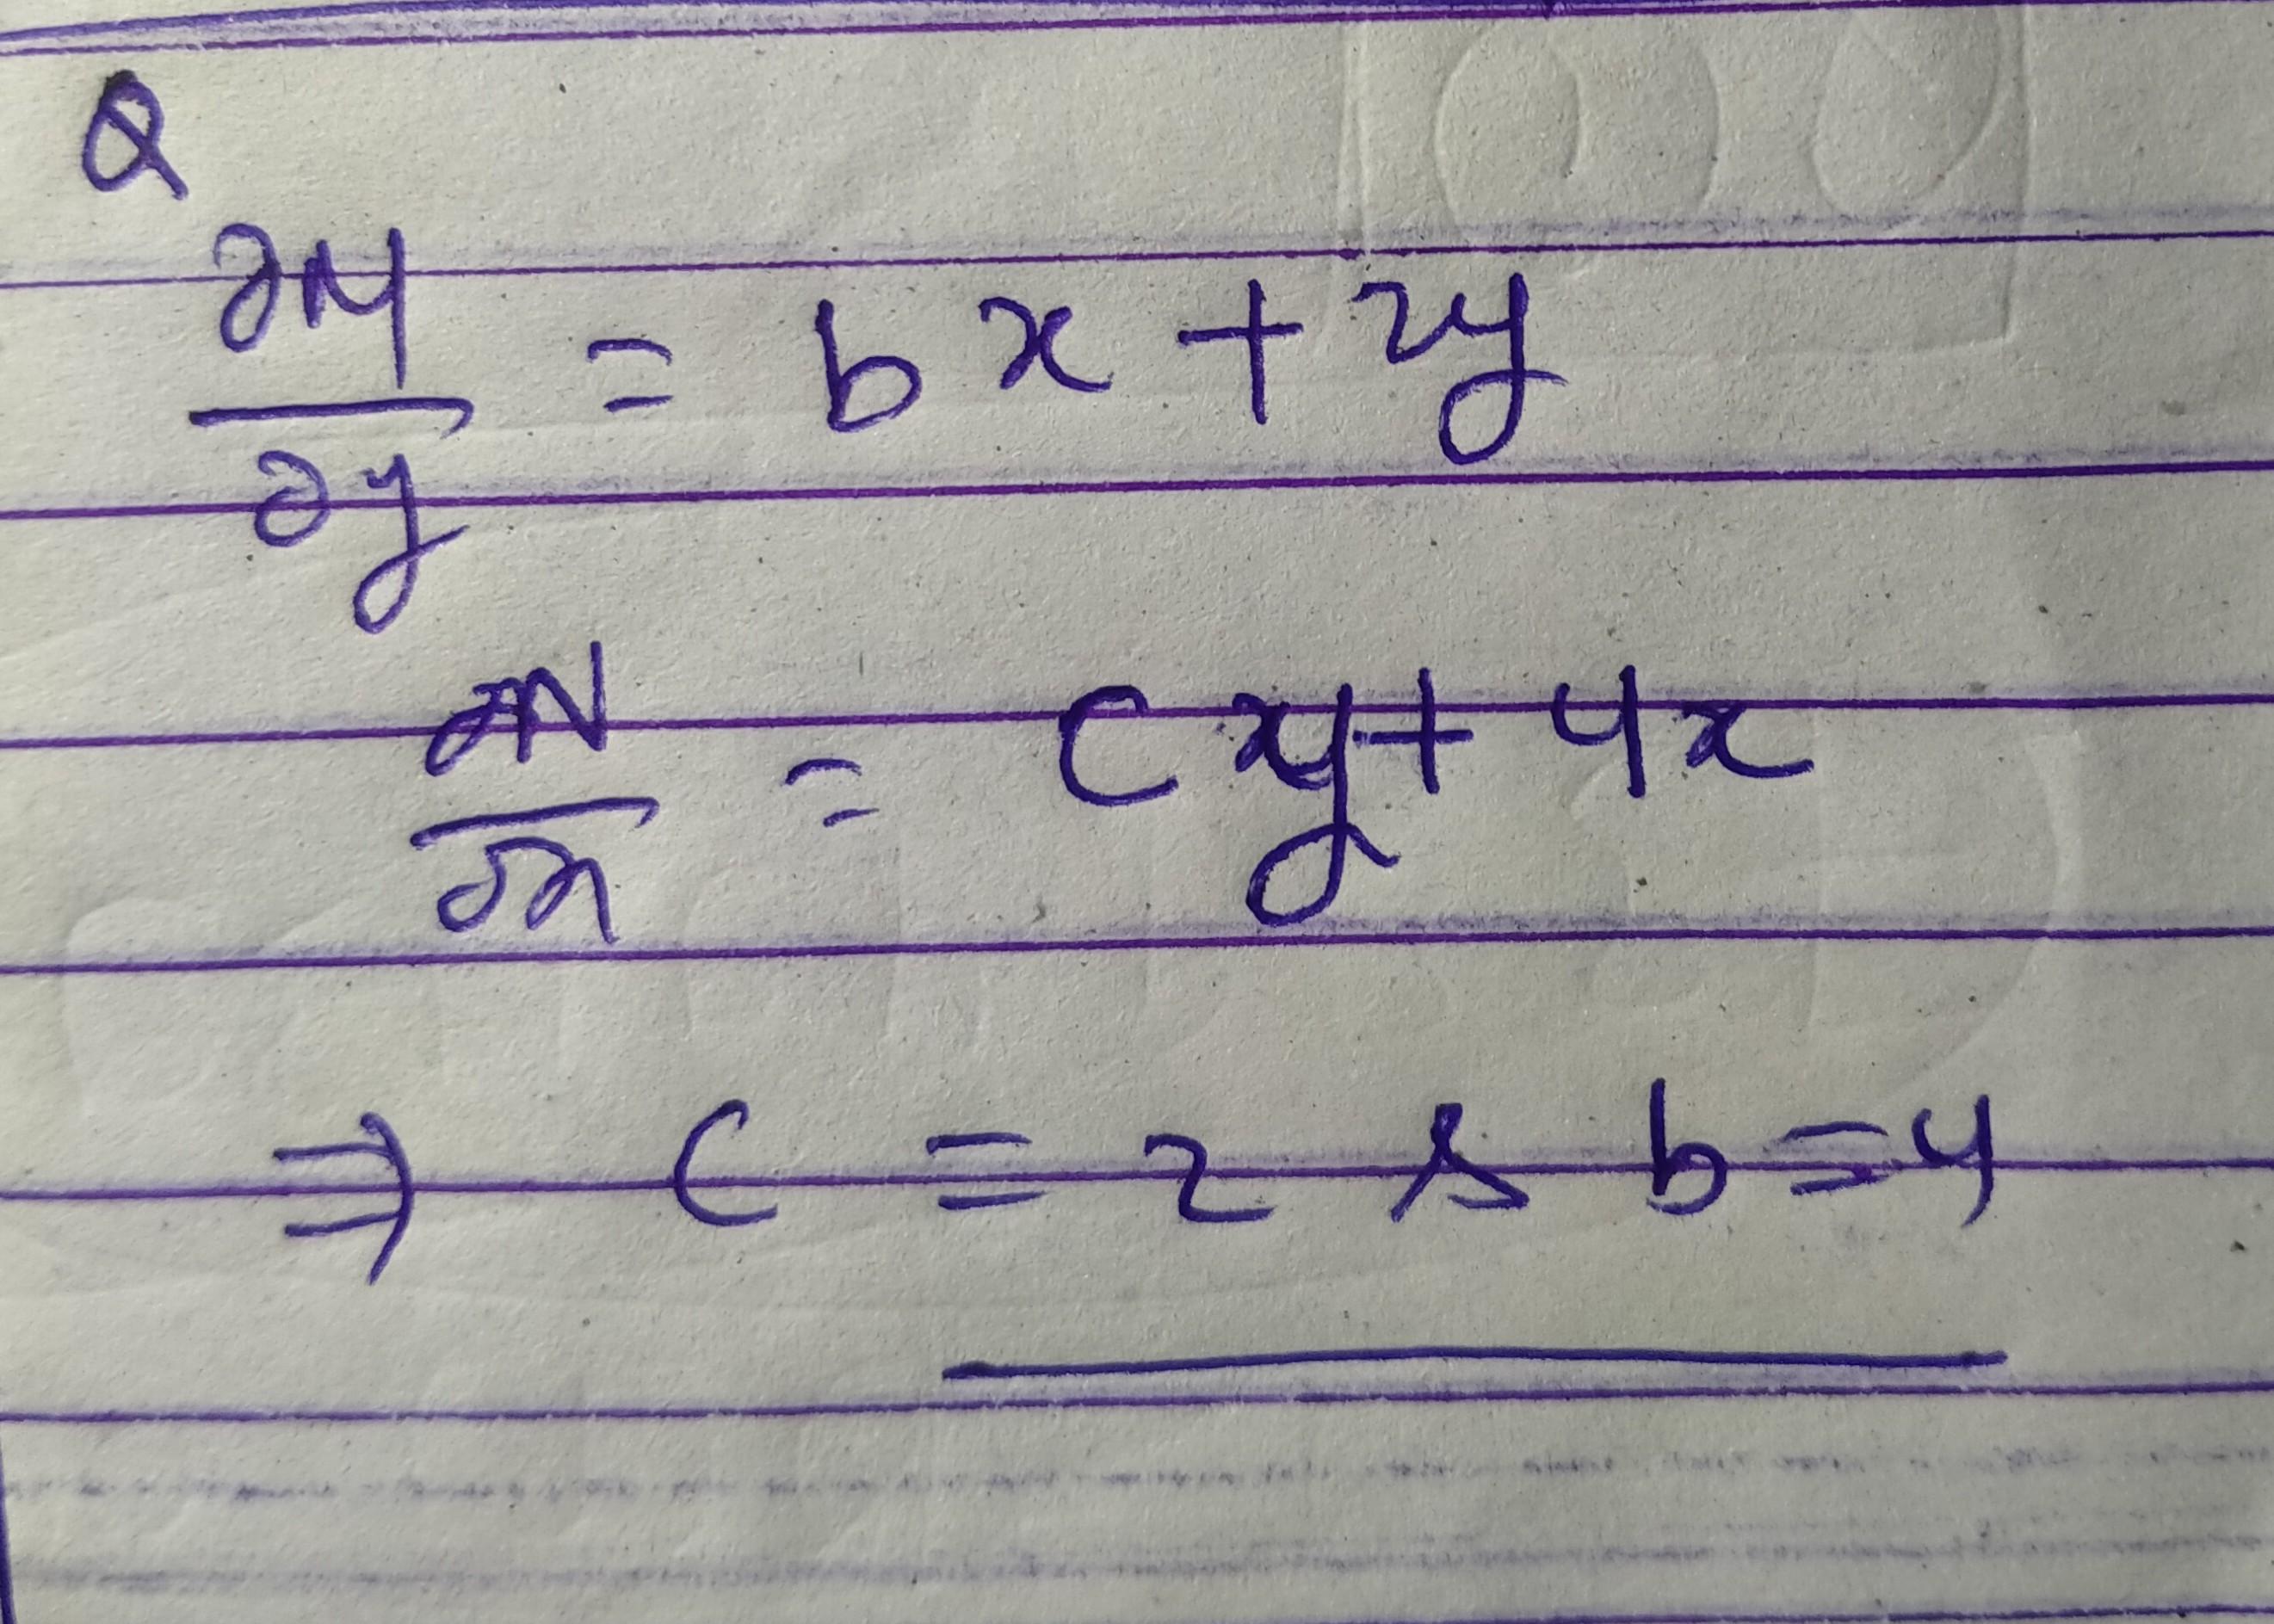 Q
∂M/∂y = bx + 2y
∂N/∂x = cxy + 4x
⇒ c = 2 & b = 4